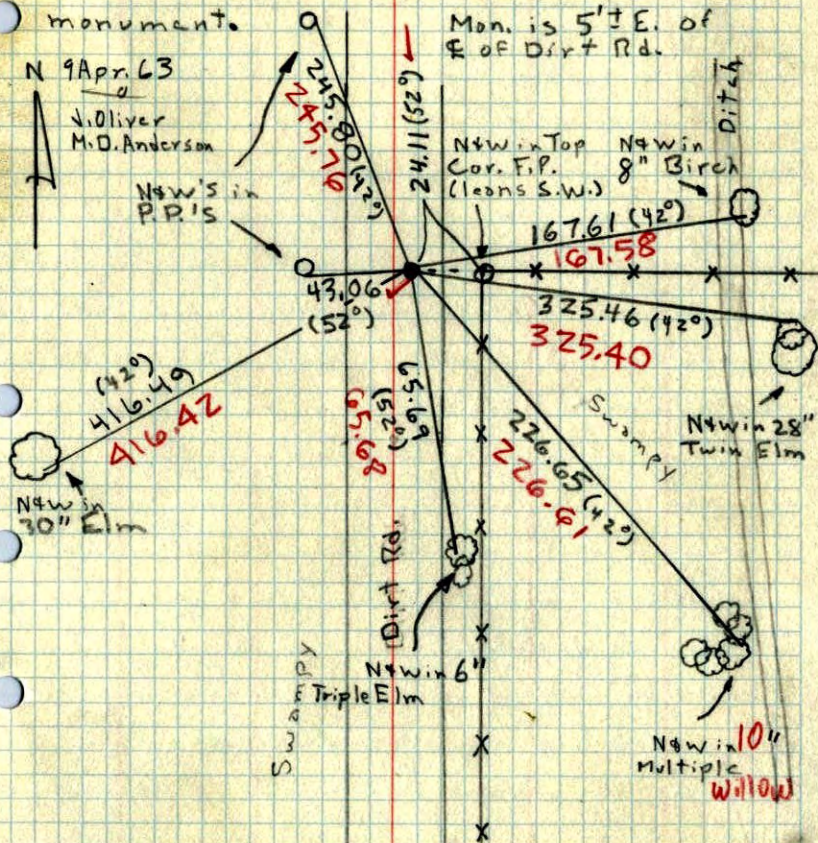 monument.
Mon. is 5'± E. of
℄ of Dirt Rd.
N 9 Apr. 63
J. Oliver
M.D. Anderson
N&W's in
P.P.'s
245.80 (42°)
245.76
24.11 (52°)
N&W in Top
Cor. F.P.
(leans S.W.)
N&W in
8" Birch
Ditch
167.61 (42°)
167.58
43.06
(52°)
325.46 (42°)
325.40
N&W in 28"
Twin Elm
(42°)
416.49
416.42
N&W in
30" Elm
65.69
(52°)
65.68
226.65 (42°)
226.61
Swampy
Dirt Rd.
N&W in 6"
Triple Elm
Swampy
N&W in 10"
Multiple
Willow